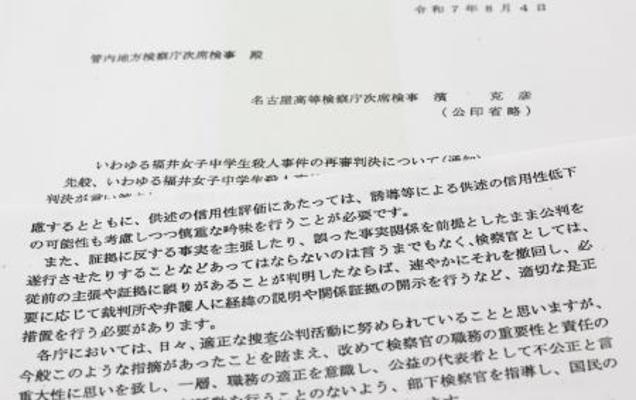 令和７年８月４日
管内地方検察庁次席検事　殿
名古屋高等検察庁次席検事　濱　克彦
（公印省略）
いわゆる福井女子中学生殺人事件の再審判決について（通知）
先般、いわゆる福井女子中学生殺人事件
判決が言い渡
慮するとともに、供述の信用性評価にあたっては、誘導等による供述の信用性低下
の可能性も考慮しつつ慎重な吟味を行うことが必要です。
また、証拠に反する事実を主張したり、誤った事実関係を前提としたまま公判を
遂行させたりすることなどあってはならないのは言うまでもなく、検察官としては、
従前の主張や証拠に誤りがあることが判明したならば、速やかにそれを撤回し、必
要に応じて裁判所や弁護人に経緯の説明や関係証拠の開示を行うなど、適切な是正
措置を行う必要があります。
各庁においては、日々、適正な捜査公判活動に努められていることと思いますが、
今般このような指摘があったことを踏まえ、改めて検察官の職務の重要性と責任の
重大性に思いを致し、一層、職務の適正を意識し、公益の代表者として不公正と言
行うことのないよう、部下検察官を指導し、国民の